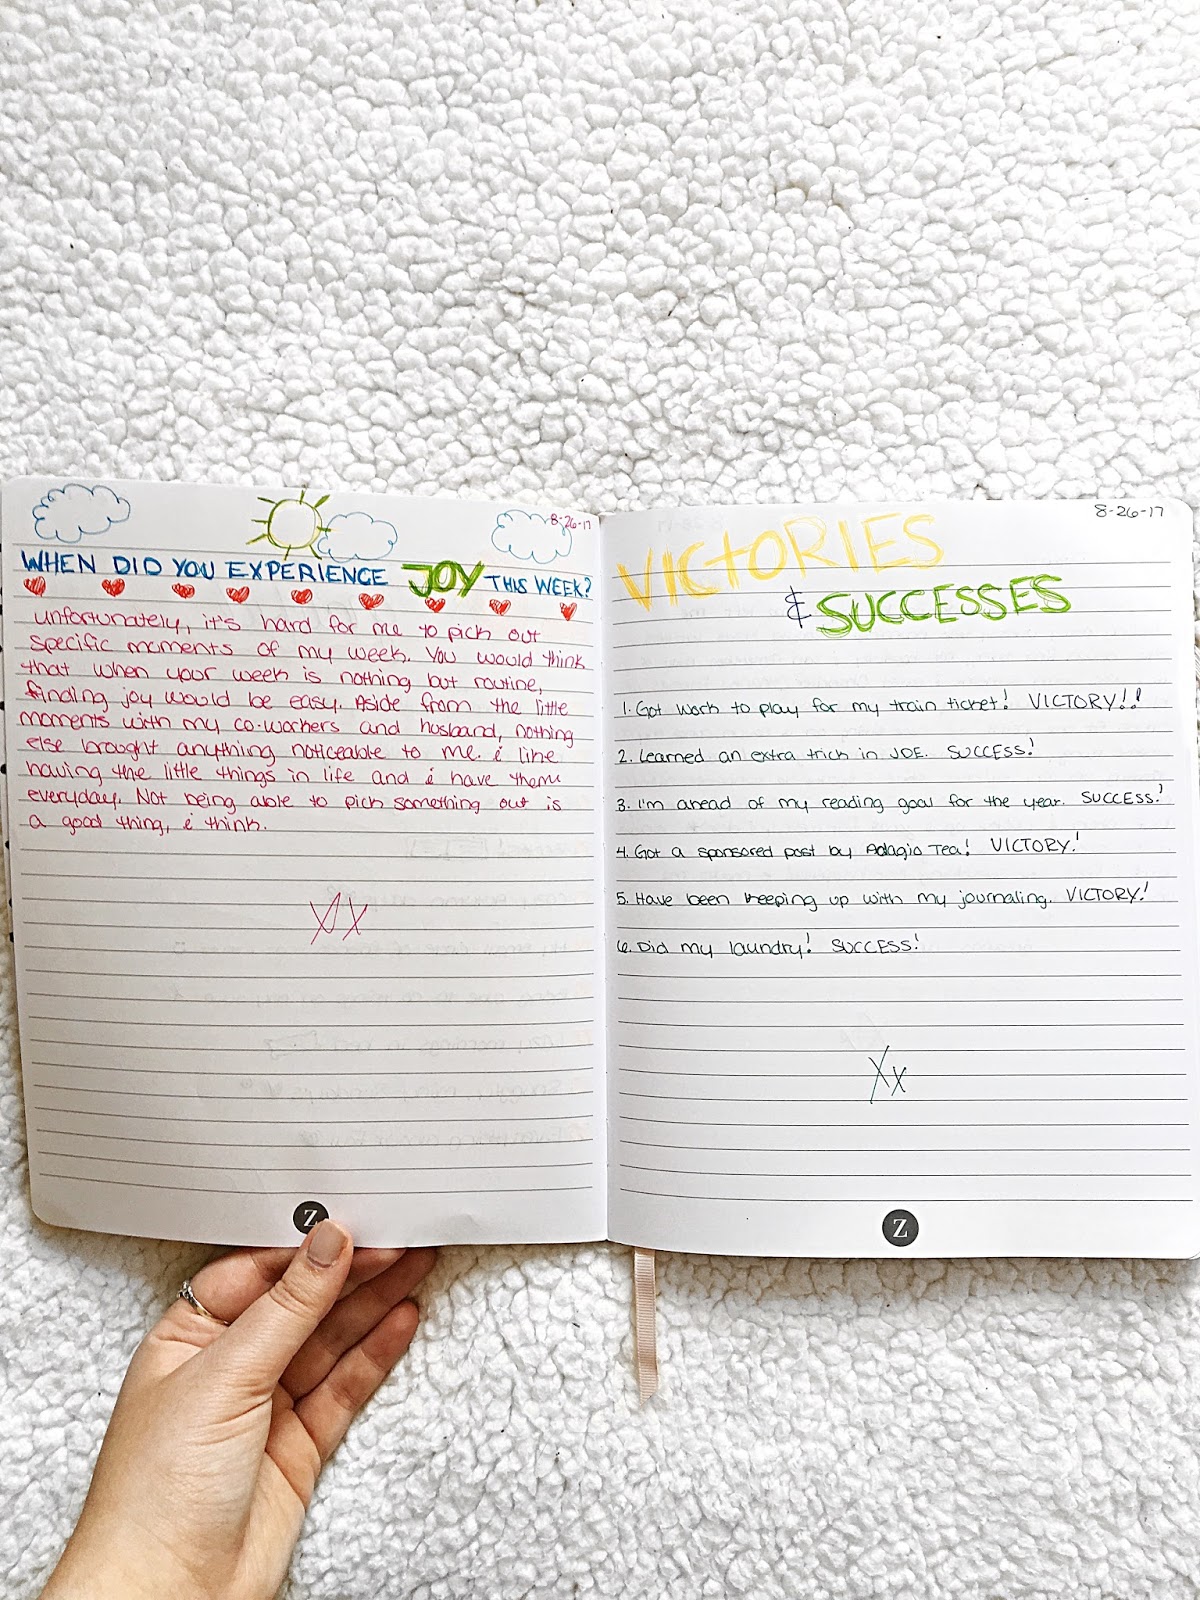 8-26-17
WHEN DID YOU EXPERIENCE JOY THIS WEEK?
unfortunately, it's hard for me to pick out
specific moments of my week. You would think
that when your week is nothing but routine,
finding joy would be easy. Aside from the little
moments with my co-workers and husband, nothing
else brought anything noticeable to me. i like
having the little things in life and i have them
everyday. Not being able to pick something out is
a good thing, i think.
Xx
Z
8-26-17
VICTORIES
& SUCCESSES
1. Got work to play for my train ticket! VICTORY!!
2. Learned an extra trick in JOE. SUCCESS!
3. I'm ahead of my reading goal for the year. SUCCESS!
4. Got a sponsored post by Adagio Tea! VICTORY!
5. Have been keeping up with my journaling. VICTORY!
6. Did my laundry! SUCCESS!
Xx
Z